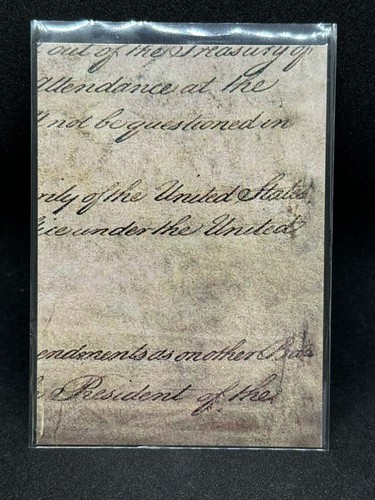 out of the Treasury of
Attendance at the
not be questioned in
rity of the United States
fice under the United
endments as on other Bills
President of the